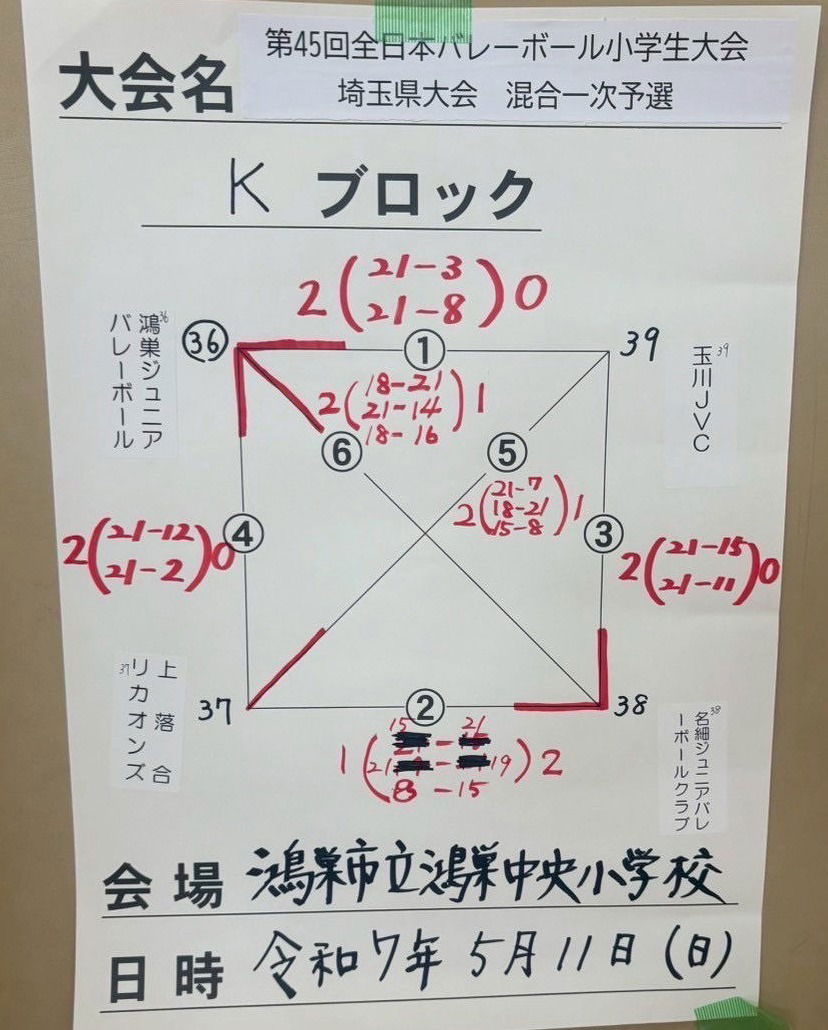 大会名
第45回全日本バレーボール小学生大会
埼玉県大会 混合一次予選
K ブロック
2(21-3
21-8)0
36
鴻巣ジュニア
バレーボール
36
①
39
玉川JVC
39
2(18-21
21-14
18-16)1
⑥
⑤
2(21-7
18-21
15-8)1
2(21-12
21-2)0
④
③
2(21-15
21-11)0
37
上落合
リカオンズ
37
②
38
名細ジュニアバレ
ーボールクラブ
38
1(15-21
21-19
8-15)2
会場 鴻巣市立鴻巣中央小学校
日時 令和7年5月11日(日)